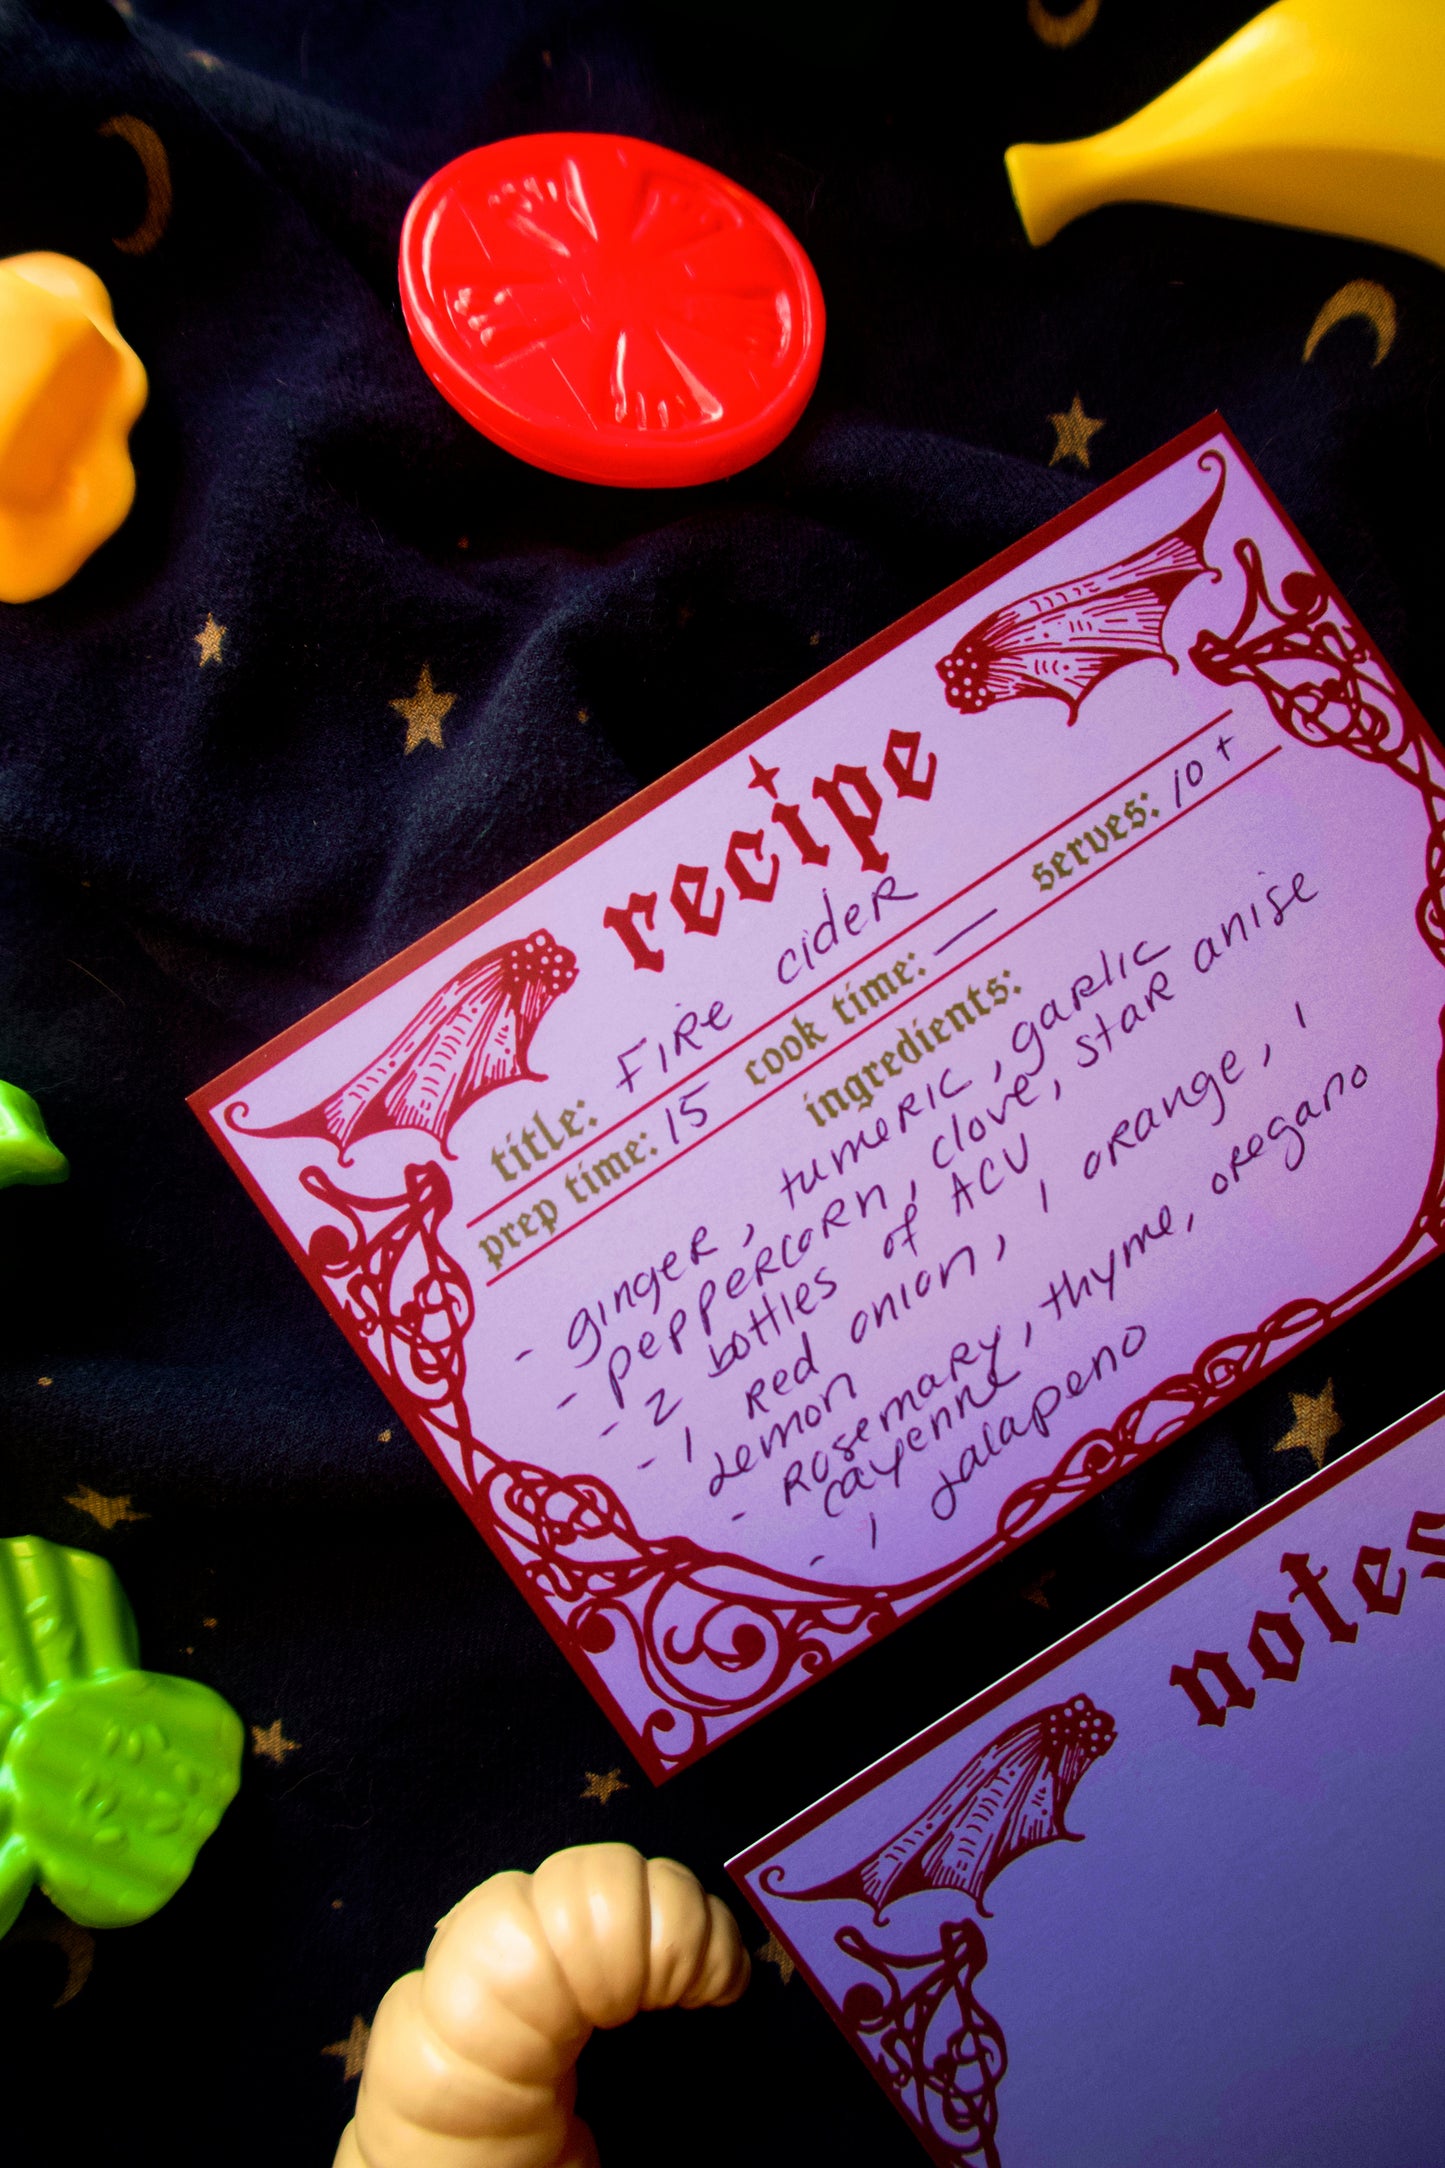 recipe
title: Fire cider
prep time: 15 cook time: — serves: 10+
ingredients:
- ginger, tumeric, garlic
- peppercorn, clove, star anise
- 2 bottles of ACV
- 1 red onion, 1 orange, 1
lemon
- rosemary, thyme, oregano
cayenne
- 1 jalapeno
notes